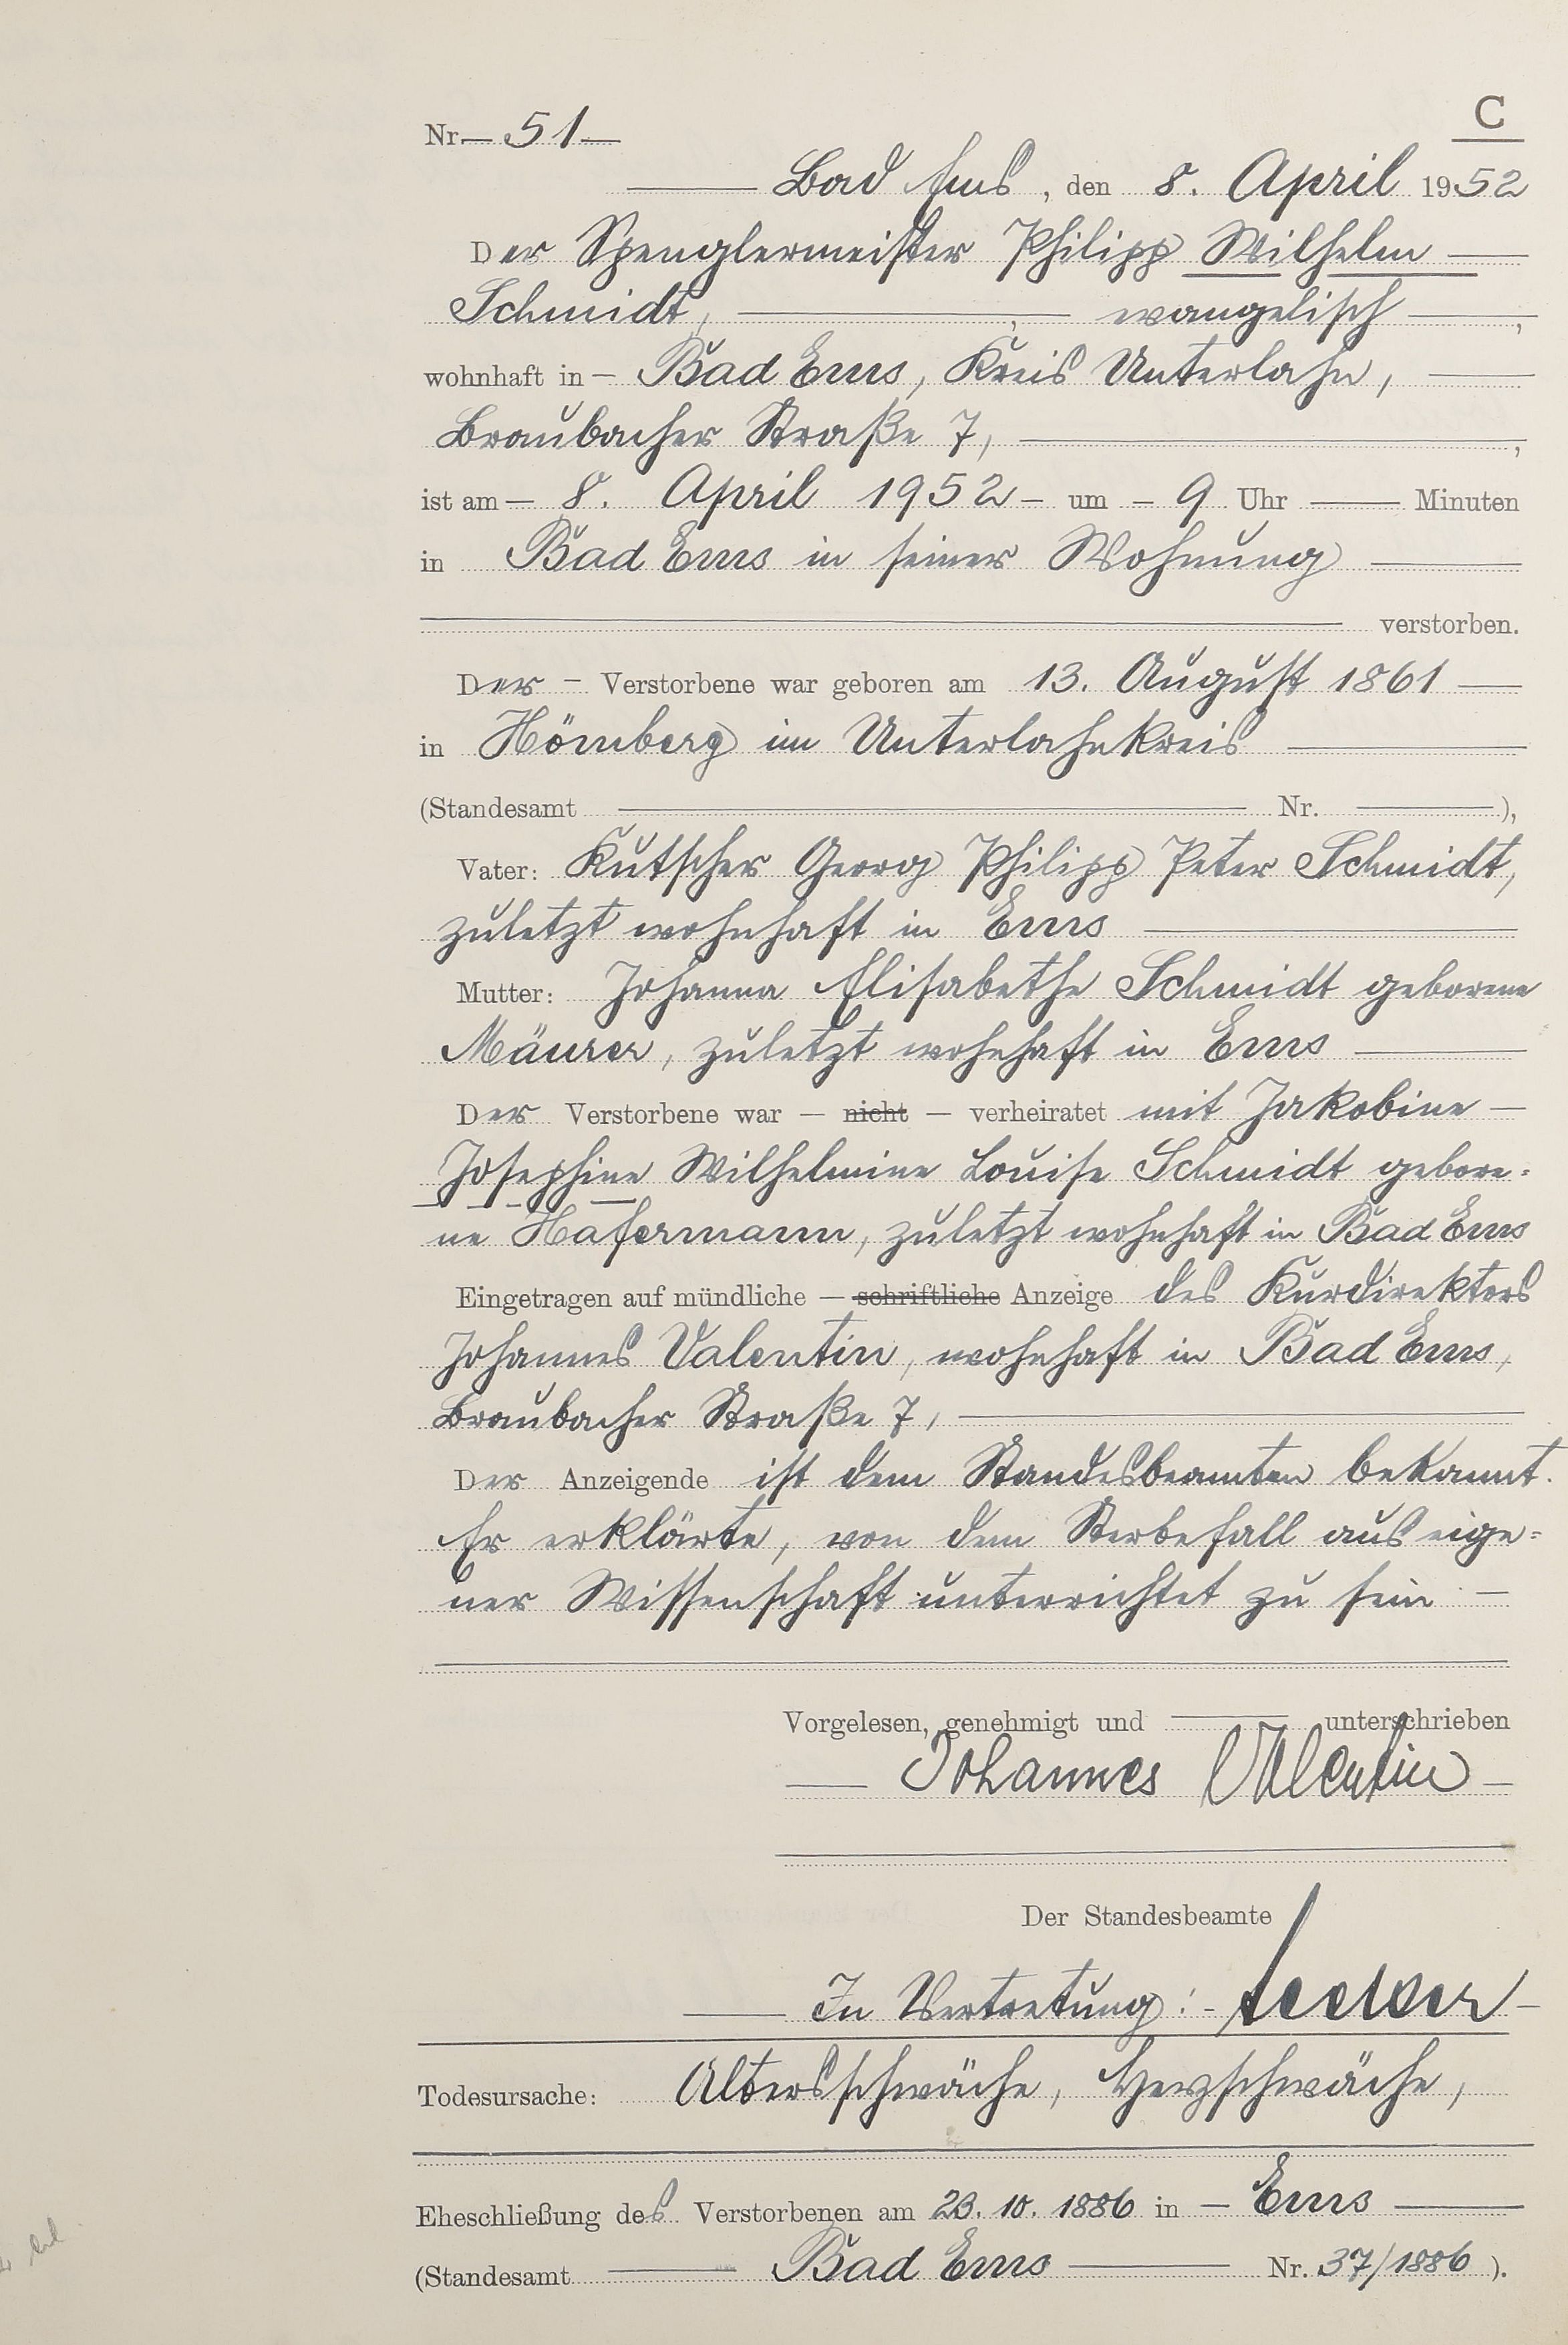 C
Nr. 51
Bad Ems, den 8. April 1952
Der Spenglermeister Philipp Wilhelm
Schmidt, , evangelisch ,
wohnhaft in Bad Ems, Kreis Unterlahn,
Braubacher Straße 7, ,
ist am 8. April 1952 um 9 Uhr Minuten
in Bad Ems in seiner Wohnung
verstorben.
Der Verstorbene war geboren am 13. August 1861
in Hömberg im Unterlahnkreis
(Standesamt Nr. ),
Vater: Kutscher Georg Philipp Peter Schmidt,
zuletzt wohnhaft in Ems
Mutter: Johanna Elisabethe Schmidt geborene
Mäurer, zuletzt wohnhaft in Ems
Der Verstorbene war — nicht — verheiratet mit Jakobine
Josephine Wilhelmine Louise Schmidt gebore-
ne Hafermann, zuletzt wohnhaft in Bad Ems
Eingetragen auf mündliche — schriftliche Anzeige des Kurdirektors
Johannes Valentin, wohnhaft in Bad Ems,
Braubacher Straße 7,
Der Anzeigende ist dem Standesbeamten bekannt.
Er erklärte, von dem Sterbefall aus eige-
ner Wissenschaft unterrichtet zu sein
Vorgelesen, genehmigt und unterschrieben
Johannes Valentin
Der Standesbeamte
In Vertretung:
Todesursache: Altersschwäche, Herzschwäche,
Eheschließung des Verstorbenen am 23. 10. 1886 in Ems
(Standesamt Bad Ems Nr. 37/1886 ).